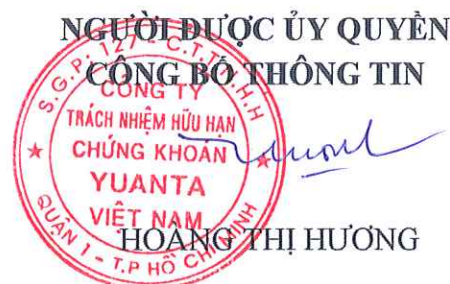 NGƯỜI ĐƯỢC ỦY QUYỀN
CÔNG BỐ THÔNG TIN
S.G.P: 127 - C.T.T.N.H.H
CÔNG TY
TRÁCH NHIỆM HỮU HẠN
CHỨNG KHOÁN
YUANTA
VIỆT NAM
QUẬN 1 - T.P HỒ CHÍ MINH
HOÀNG THỊ HƯƠNG